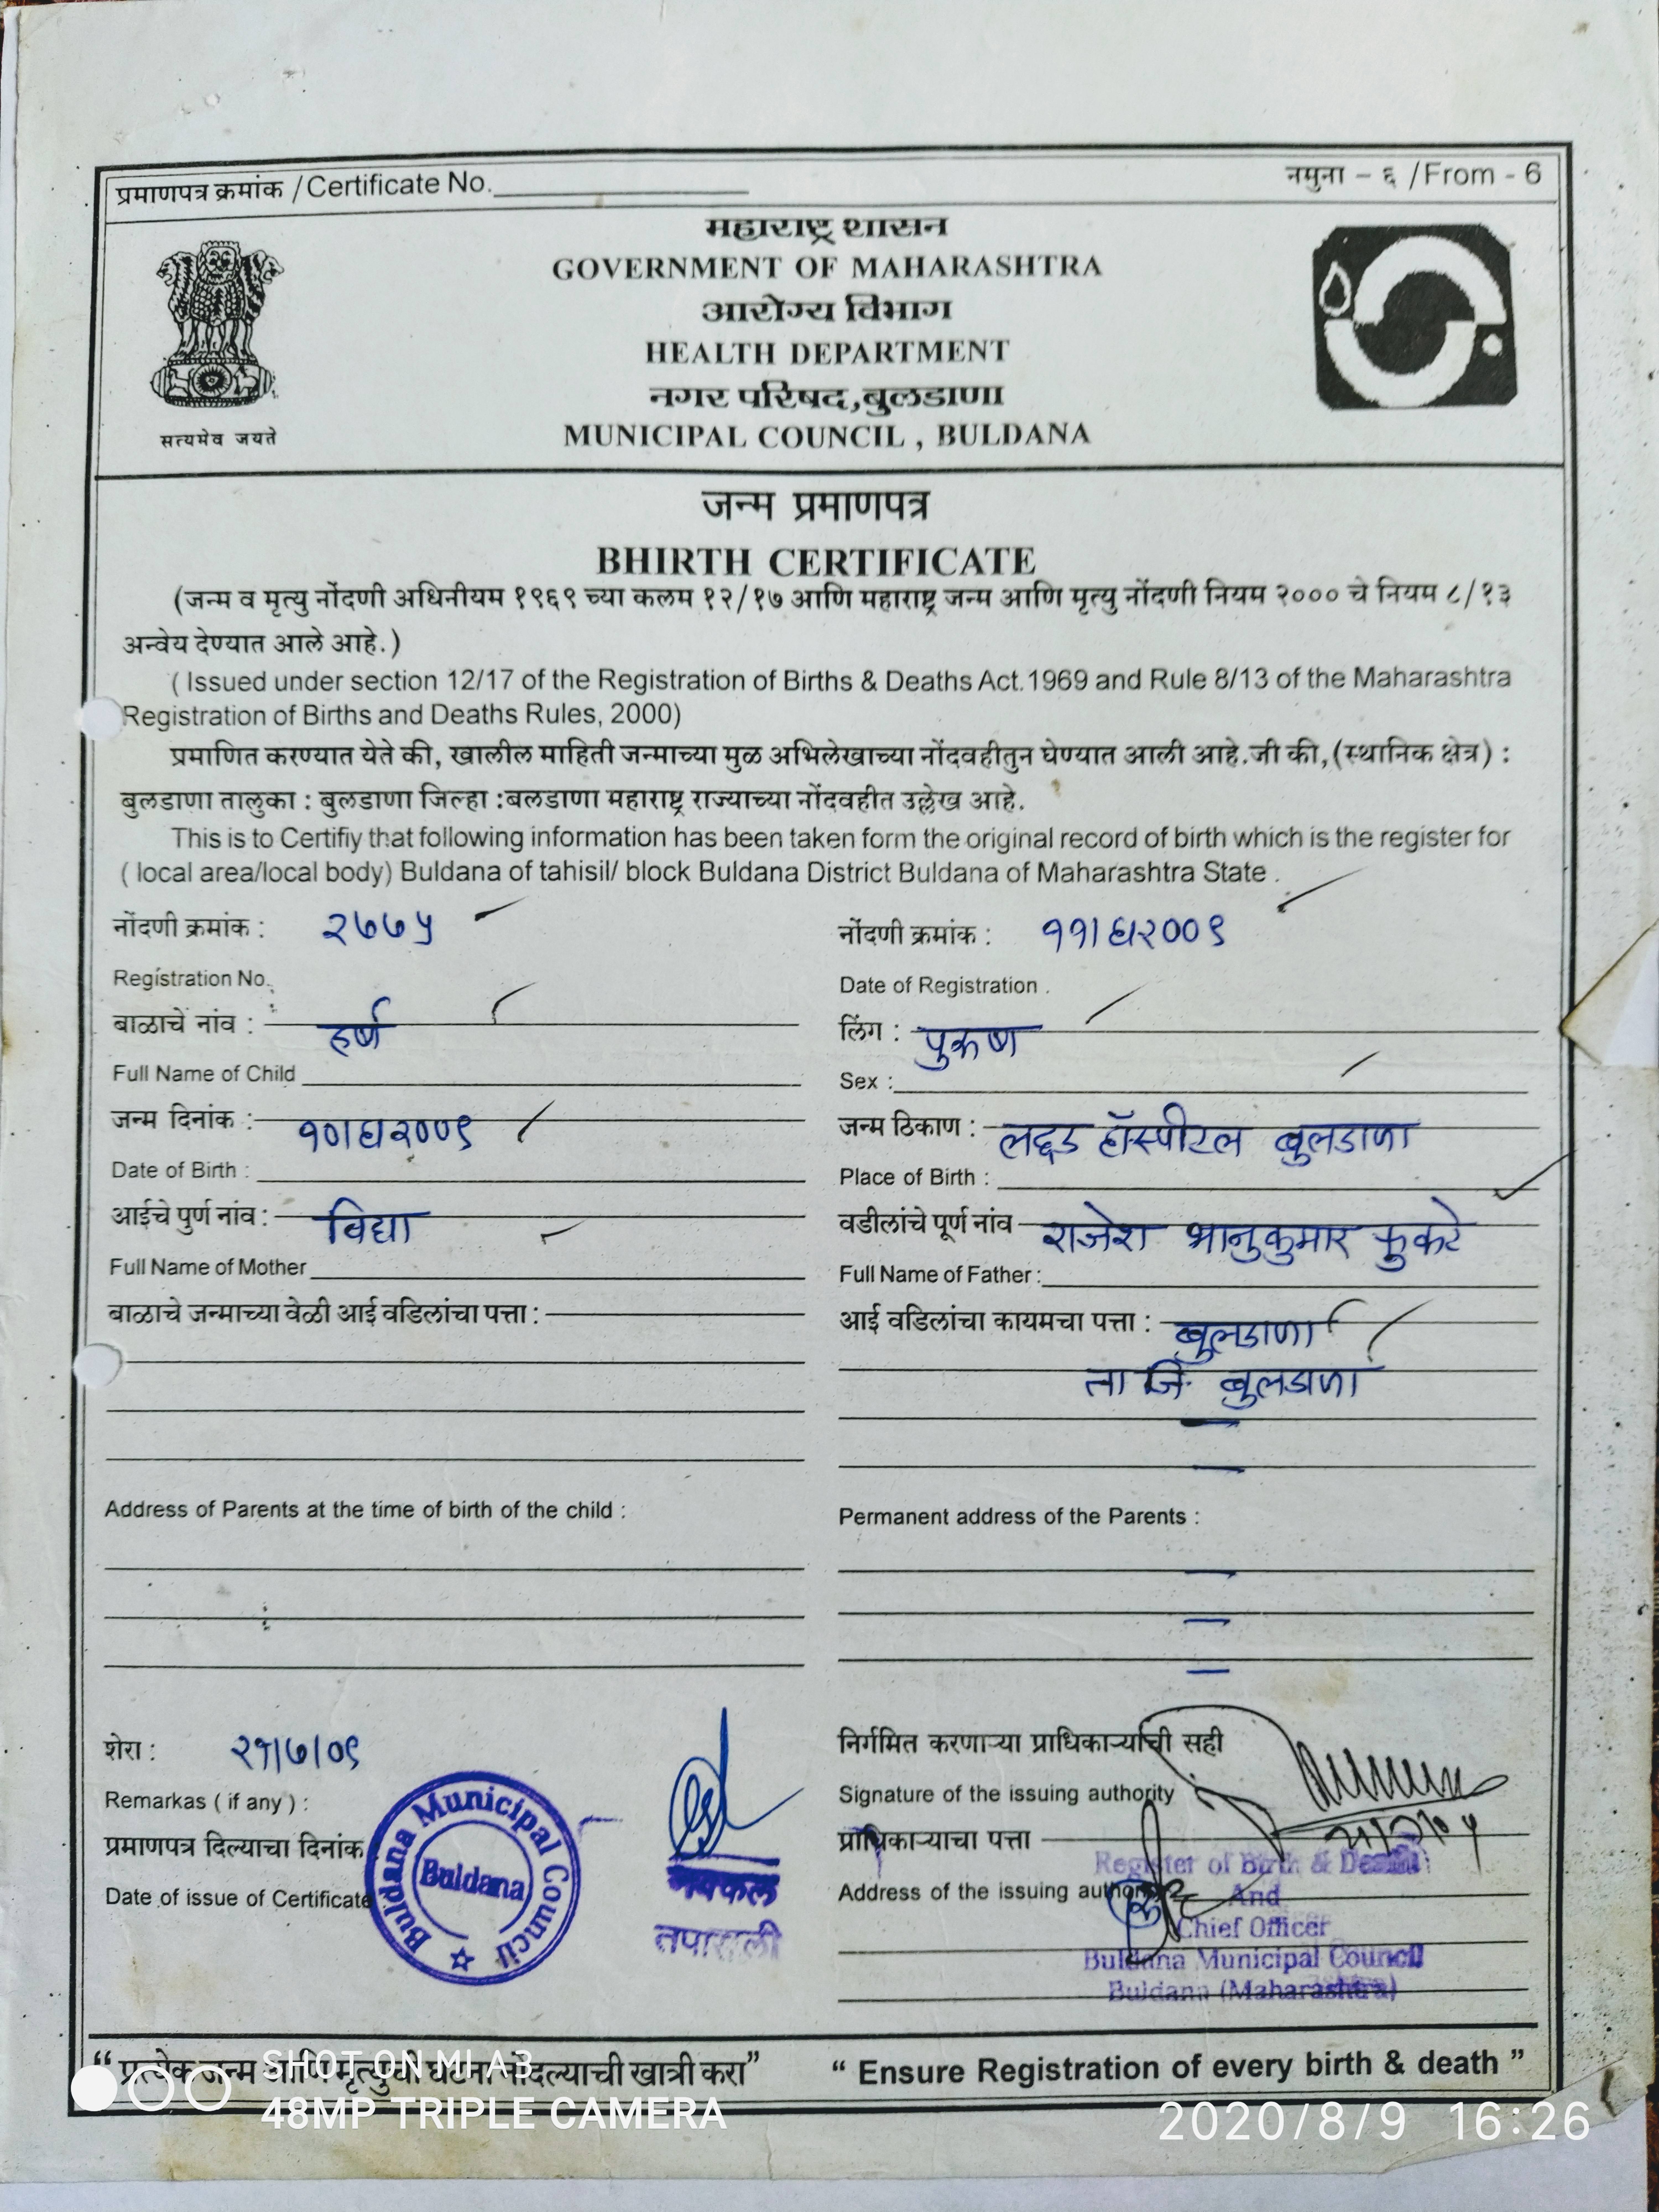 प्रमाणपत्र क्रमांक / Certificate No.
नमुना - ६ / From - 6
महाराष्ट्र शासन
GOVERNMENT OF MAHARASHTRA
आरोग्य विभाग
HEALTH DEPARTMENT
नगर परिषद,बुलडाणा
MUNICIPAL COUNCIL , BULDANA
सत्यमेव जयते
जन्म प्रमाणपत्र
BHIRTH CERTIFICATE
(जन्म व मृत्यु नोंदणी अधिनीयम १९६९ च्या कलम १२/१७ आणि महाराष्ट्र जन्म आणि मृत्यु नोंदणी नियम २००० चे नियम ८/१३
अन्वेय देण्यात आले आहे.)
( Issued under section 12/17 of the Registration of Births & Deaths Act.1969 and Rule 8/13 of the Maharashtra
Registration of Births and Deaths Rules, 2000)
प्रमाणित करण्यात येते की, खालील माहिती जन्माच्या मुळ अभिलेखाच्या नोंदवहीतुन घेण्यात आली आहे.जी की,(स्थानिक क्षेत्र) :
बुलडाणा तालुका : बुलडाणा जिल्हा :बलडाणा महाराष्ट्र राज्याच्या नोंदवहीत उल्लेख आहे.
This is to Certifiy that following information has been taken form the original record of birth which is the register for
( local area/local body) Buldana of tahisil/ block Buldana District Buldana of Maharashtra State .
नोंदणी क्रमांक : २७७५
नोंदणी क्रमांक : ११/६/२००९
Registration No.
Date of Registration .
बाळाचे नांव : हर्ष
लिंग : पुरुष
Full Name of Child
Sex :
जन्म दिनांक : १०/६/२००९
जन्म ठिकाण : लद्दड हॉस्पीटल बुलडाणा
Date of Birth :
Place of Birth :
आईचे पुर्ण नांव : विद्या
वडीलांचे पूर्ण नांव राजेश भानुकुमार फुकटे
Full Name of Mother
Full Name of Father :
बाळाचे जन्माच्या वेळी आई वडिलांचा पत्ता :
आई वडिलांचा कायमचा पत्ता : बुलडाणा
ता जि. बुलडाणा
Address of Parents at the time of birth of the child :
Permanent address of the Parents :
शेरा : २१/७/०९
निर्गमित करणाऱ्या प्राधिकाऱ्याची सही
Remarkas ( if any ) :
Signature of the issuing authority
प्रमाणपत्र दिल्याचा दिनांक
प्राधिकाऱ्याचा पत्ता
Date of issue of Certificate
Address of the issuing authority
Buldana Municipal Council
Buldana
तपासली
Register of Birth & Death
And
Chief Officer
Buldana Municipal Council
Buldana (Maharashtra)
“ प्रत्येक जन्म आणि मृत्युची घटना नोंदल्याची खात्री करा”
“ Ensure Registration of every birth & death ”
SHOT ON MI A3
48MP TRIPLE CAMERA
2020/8/9 16:26